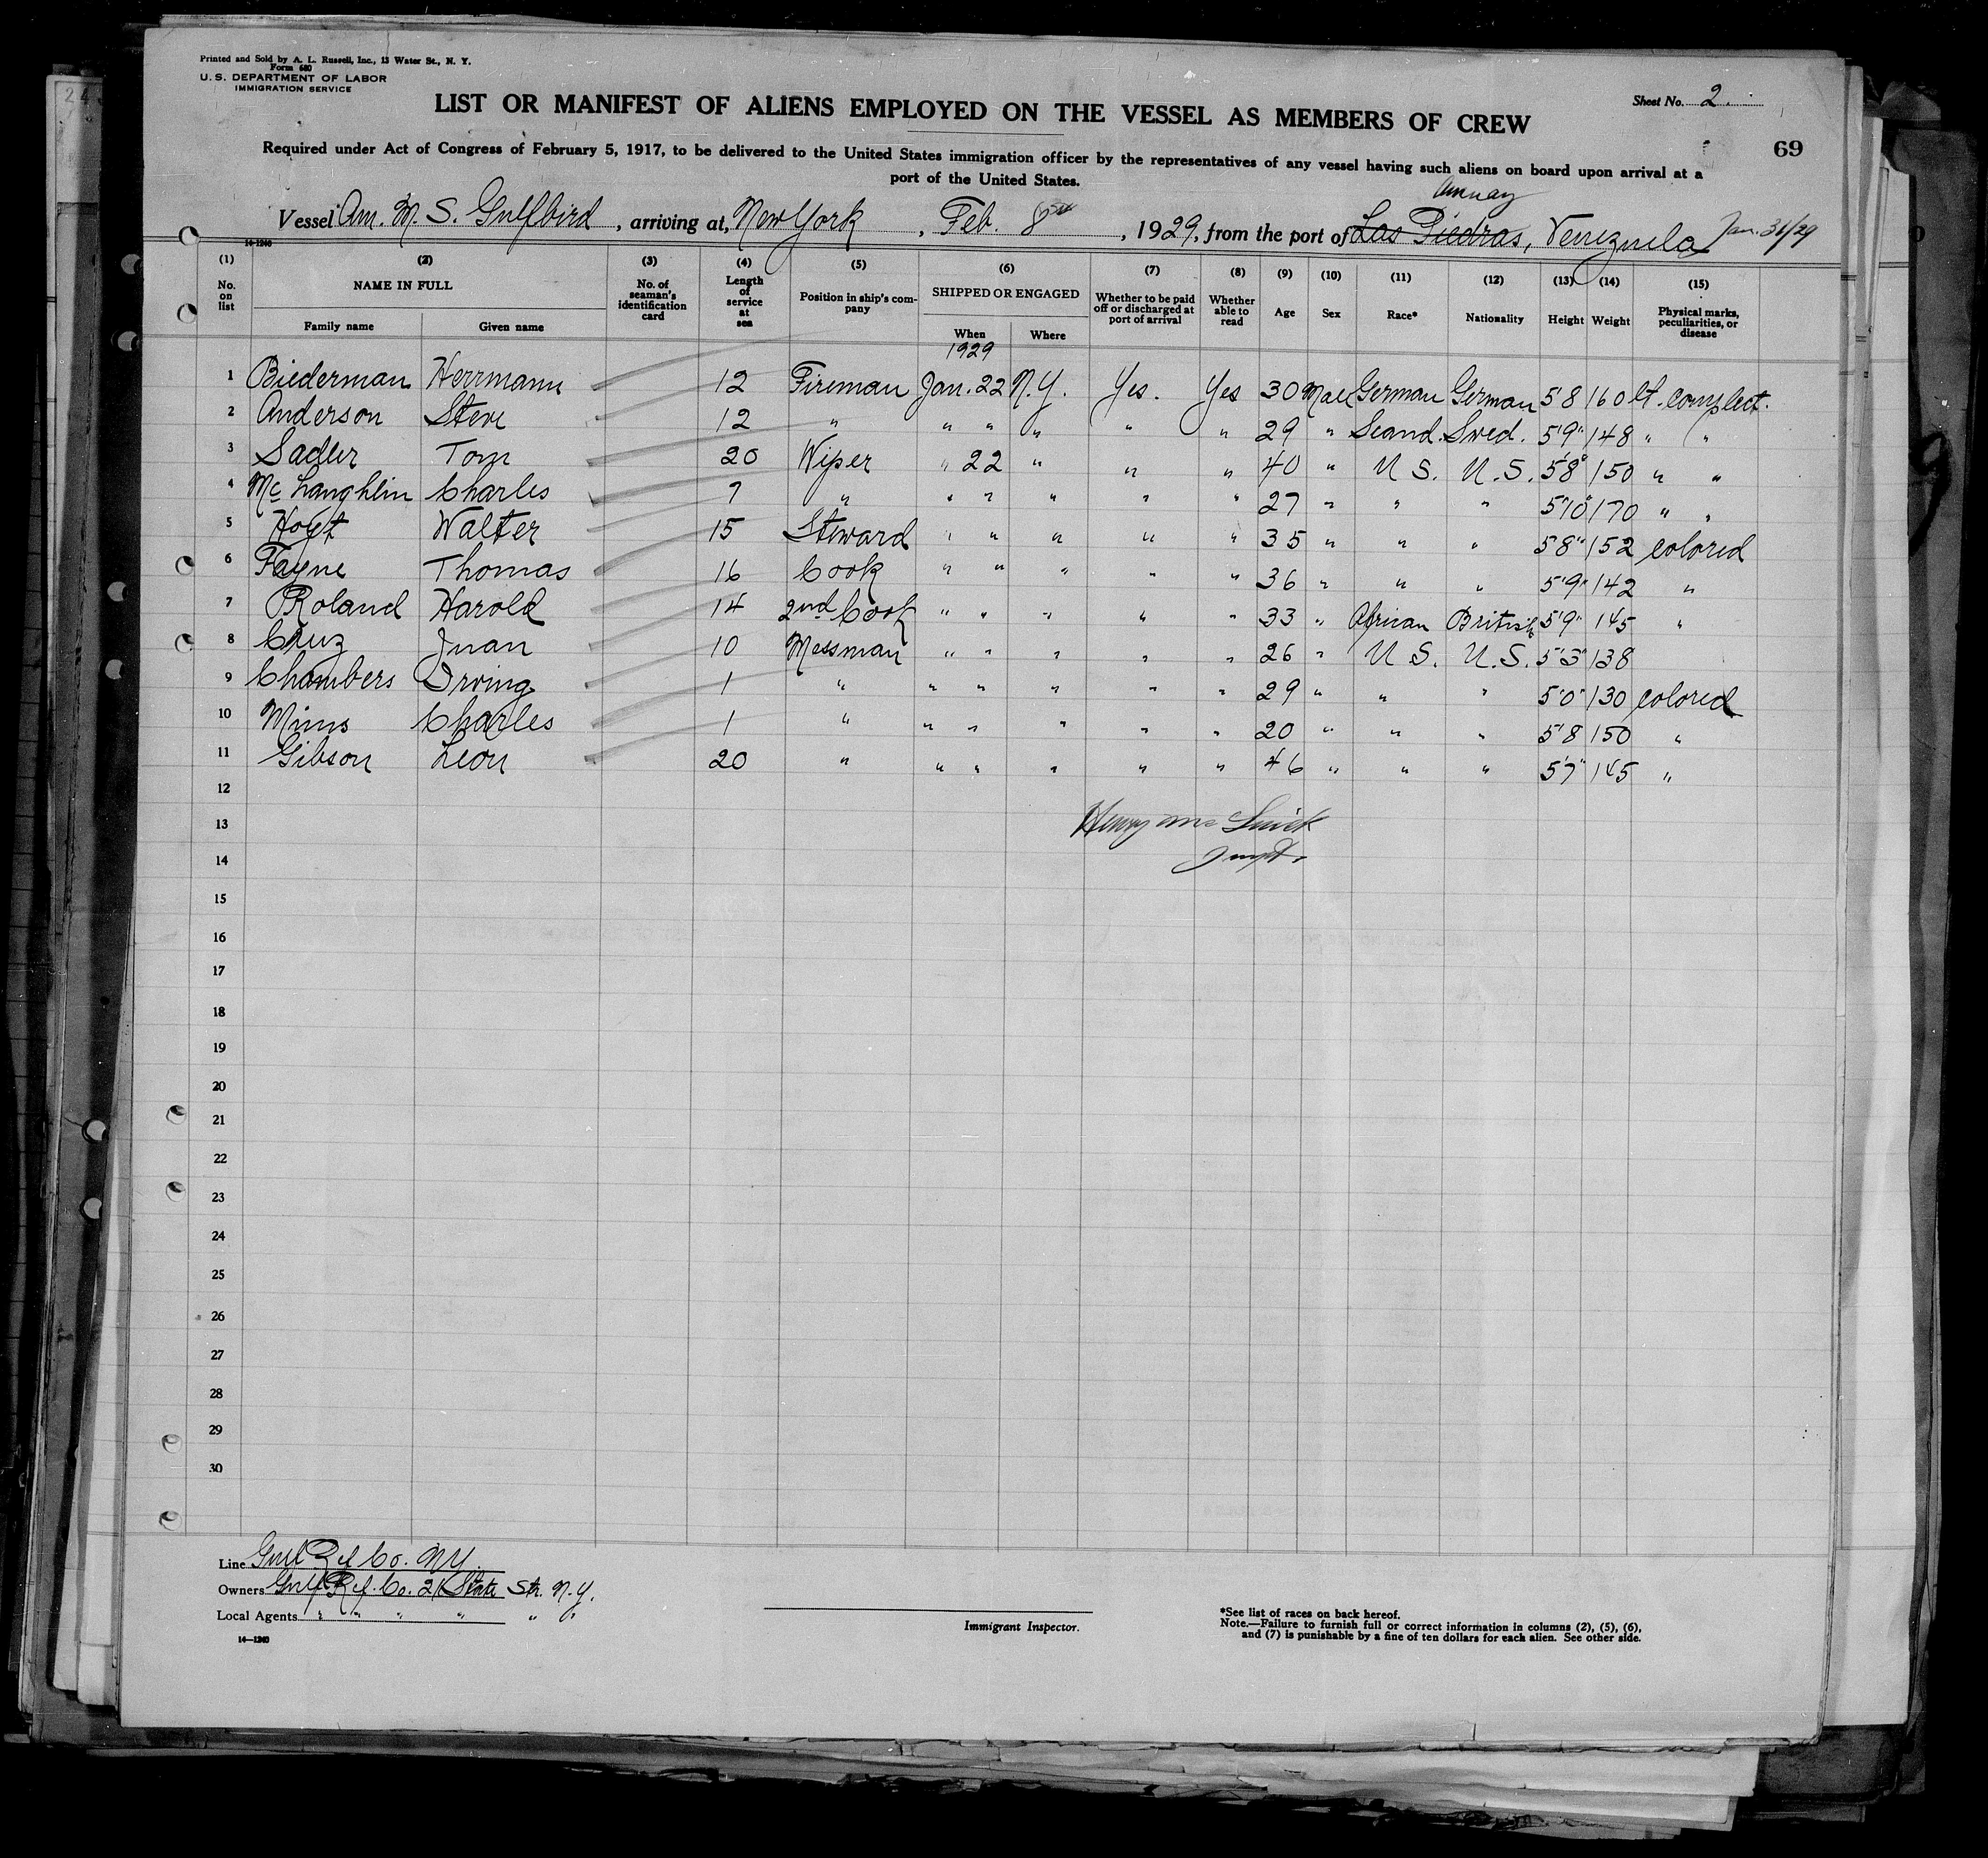 Printed and Sold by A. L. Russell, Inc., 13 Water St., N. Y.
Form 680
U. S. DEPARTMENT OF LABOR
IMMIGRATION SERVICE
Sheet No. 2.
LIST OR MANIFEST OF ALIENS EMPLOYED ON THE VESSEL AS MEMBERS OF CREW
69
Required under Act of Congress of February 5, 1917, to be delivered to the United States immigration officer by the representatives of any vessel having such aliens on board upon arrival at a
port of the United States.
Amuay
Vessel Am. M. S. Gulfbird, arriving at, New York, Feb. 8th, 1929, from the port of Las Piedras, Venezuela Jan. 31/29
14-1240
(1) (2) (3) (4) (5) (6) (7) (8) (9) (10) (11) (12) (13) (14) (15)
No. on list NAME IN FULL Family name Given name No. of seaman's identification card Length of service at sea Position in ship's company SHIPPED OR ENGAGED When Where Whether to be paid off or discharged at port of arrival Whether able to read Age Sex Race* Nationality Height Weight Physical marks, peculiarities, or disease
1929
1 Biederman Herrmann 12 Fireman Jan. 22 N.Y. Yes. Yes 30 Male German German 5'8 160 lt. complect.
2 Anderson Steve 12 " " " " " " 29 " Scand. Swed. 5'9" 148 " "
3 Sadler Tom 20 Wiper " 22 " " " 40 " U S. U. S. 5'8" 150 " "
4 Mc Laughlin Charles 7 " " " " " " 27 " " " 5'10" 170 " "
5 Hoyt Walter 15 Steward " " " " " 35 " " " 5'8" 152 colored
6 Fayne Thomas 16 Cook " " " " " 36 " " " 5'9" 142 "
7 Roland Harold 14 2nd Cook " " " " " 33 " African British 5'9" 145 "
8 Cruz Juan 10 Messman " " " " " 26 " U S. U. S. 5'3" 138
9 Chambers Irving 1 " " " " " " 29 " " " 5'0" 130 colored
10 Mims Charles 1 " " " " " " 20 " " " 5'8 150 "
11 Gibson Leon 20 " " " " " " 46 " " " 5'7" 145 "
12
13 Henry
14
15
16
17
18
19
20
21
22
23
24
25
26
27
28
29
30
Line Gulf Ref Co. N.Y.
Owners Gulf Ref. Co. 21 State Str. N.Y.
Local Agents " " " " " "
14—1240
Immigrant Inspector.
*See list of races on back hereof.
Note.—Failure to furnish full or correct information in columns (2), (5), (6),
and (7) is punishable by a fine of ten dollars for each alien. See other side.